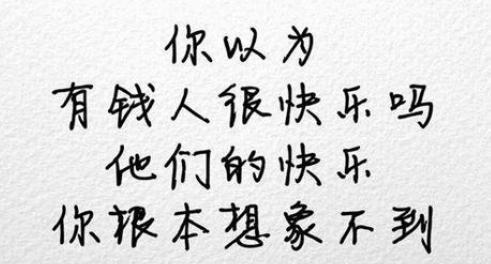 你以为
有钱人很快乐吗
他们的快乐
你根本想象不到